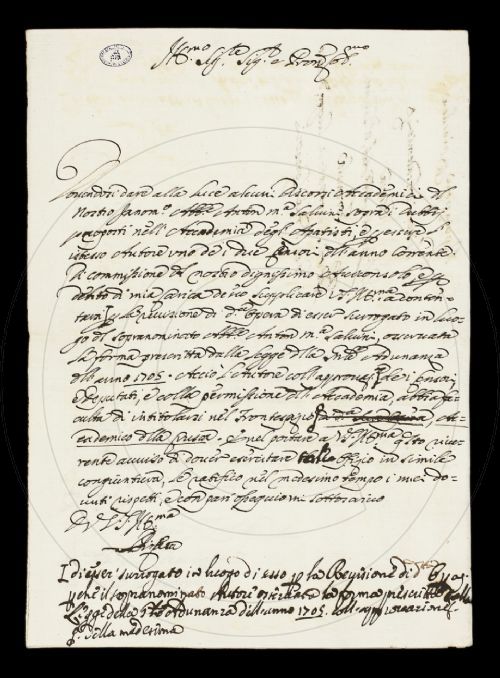 Ill.mo Sig.re Sig.r e Pron. Col.mo
Dovendosi dare alla luce alcuni Discorsi Accademici del
Nostro Sanom.o Abb.e Anton M.a Salvini sopra i dubbij
proposti nell'Accademia degl'Apatisti, e per esser l'
istesso Autore uno de i due Censori dell'anno corrente
di commissione del nostro dignissimo Arciconsolo, e per
debito di mia carica devo supplicare V.S. Ill.ma a conten-
tarsi per la revisione di d.a Opera d'esser surrogato in luo-
go del soprannominato Abb.e Anton M.a Salvini, osservata
la forma prescritta dalla legge della Adunanza
dell'anno 1705. Acciò l'Autore coll'approvaz.e de i Censori,
e Deputati, e colla permissione dell'Accademia, abbia fa-
cultà di intitolarsi nel frontespizio Ac-
cademico della Crusca. E nel portare a V.S. Ill.ma q.sto rive-
rente avviso di dover esercitare tale offizio in simile
congiuntura, le ratifico nel medesimo tempo i miei do-
vuti rispetti, e con pari ossequio mi sottoscrivo
Di V.S. Ill.ma
I di esser surrogato in luogo di esso p la Revisione di d.
p che il sopranominato Autore osservata la forma prescritta dalla
Legge della Adunanza dell'anno 1705. coll'approvazione
della medesima